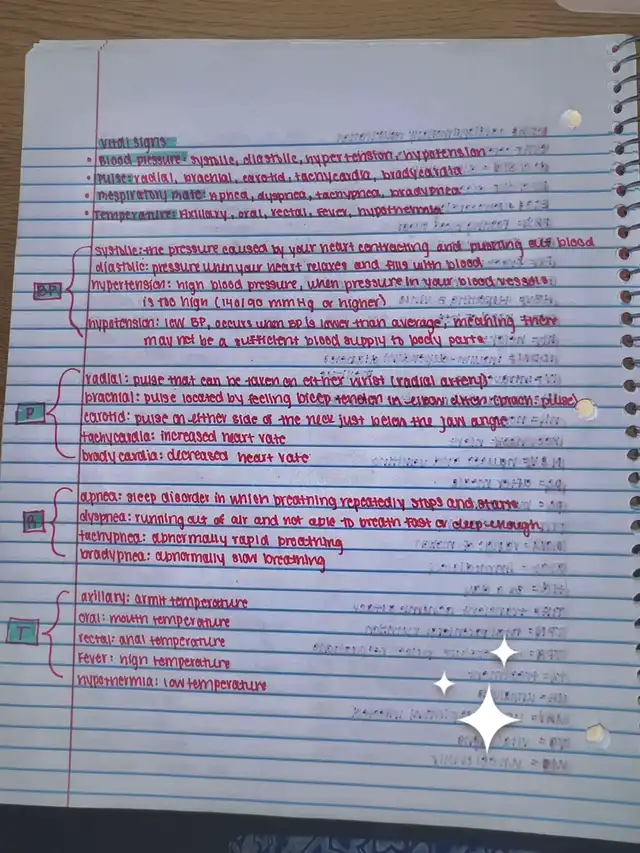 vital signs
• Blood pressure: systolic, diastolic, hypertension, hypotension
• Pulse: radial, brachial, carotid, tachycardia, bradycardia
• Respiratory Rate: Apnea, dyspnea, tachypnea, bradypnea
• Temperature: Axillary, oral, rectal, fever, hypothermia
systolic: the pressure caused by your heart contracting and pushing out blood
diastolic: pressure when your heart relaxes and fills with blood
BP
hypertension: high blood pressure, when pressure in your blood vessels
is too high (140/90 mmHg or higher)
hypotension: low BP, occurs when BP is lower than average, meaning there
may not be a sufficient blood supply to body parts
radial: pulse that can be taken on either wrist (radial artery)
brachial: pulse located by feeling bicep tendon in
P
carotid: pulse on either side of the neck just below the jaw angle
tachycardia: increased heart rate
bradycardia: decreased heart rate
apnea: sleep disorder in which breathing repeatedly stops and starts
R
dyspnea: running out of air and not able to breath fast or deep enough
tachypnea: abnormally rapid breathing
bradypnea: abnormally slow breathing
axillary: armit temperature
oral: mouth temperature
T
rectal: anal temperature
Fever: high temperature
hypothermia: low temperature